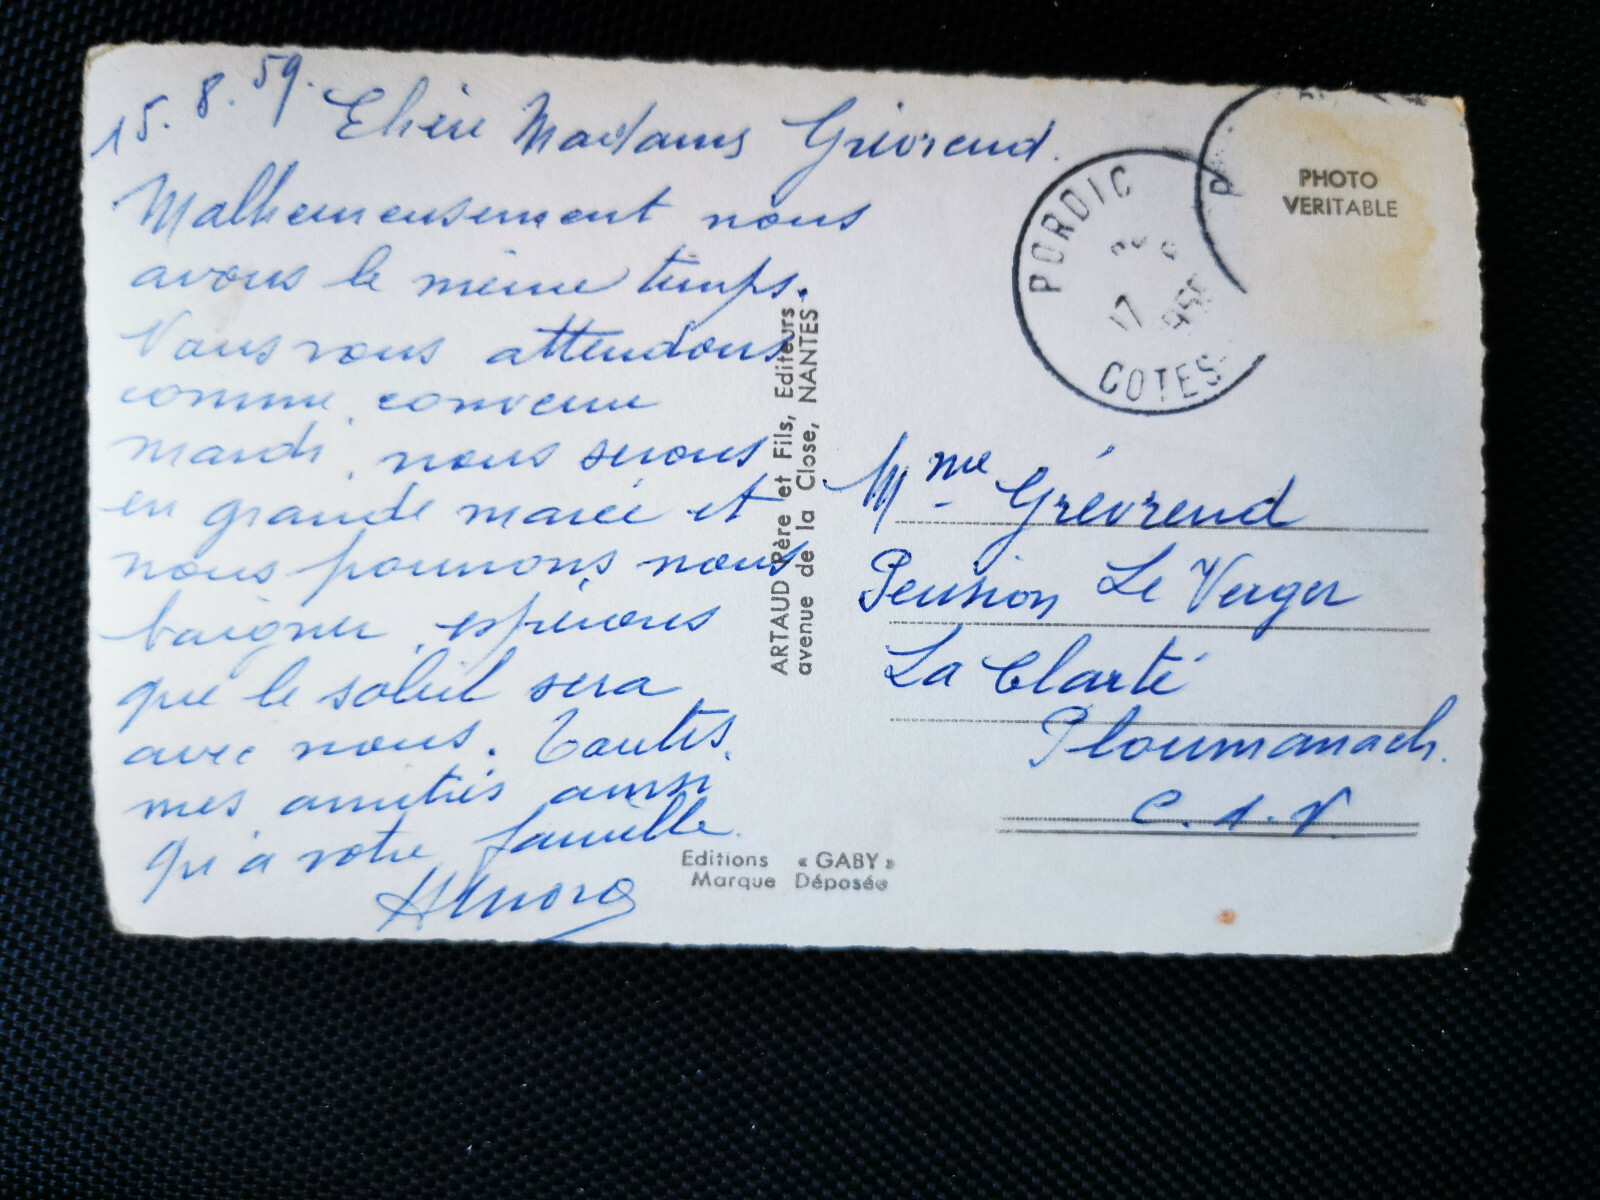 15.8.59.
Chère Madame Grévrend.
Malheureusement nous
avons le même temps.
Nous vous attendons
comme convenu
mardi, nous serons
en grande marée et
nous pourrons nous
baigner, espérons
que le soleil sera
avec nous. Toutes
mes amitiés ainsi
qu'à votre famille.
ARTAUD Père et Fils, Editeurs
avenue de la Close, NANTES
Editions « GABY »
Marque Déposée
PHOTO
VERITABLE
PORDIC
17
COTES
Mme Grévrend
Pension Le Verger
La Clarté
Ploumanach.
C.d.N.